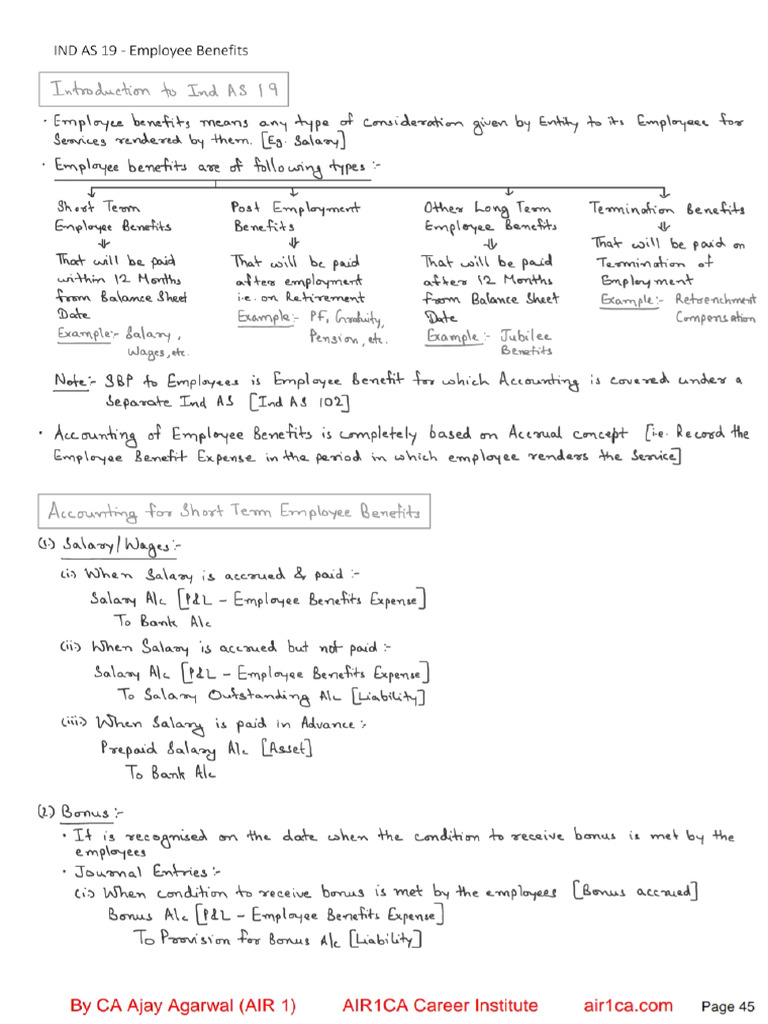 IND AS 19 - Employee Benefits
Introduction to Ind AS 19
• Employee benefits means any type of consideration given by Entity to its Employeee for
Services rendered by them. [Eg. Salary]
• Employee benefits are of following types :-
Short Term
Employee Benefits
⇓
That will be paid
within 12 Months
from Balance Sheet
Date
Example:- Salary,
Wages, etc.
Post Employment
Benefits
⇓
That will be paid
after employment
i.e. on Retirement
Example:- PF, Gratuity,
Pension, etc.
Other Long Term
Employee Benefits
⇓
That will be paid
after 12 Months
from Balance Sheet
Date
Example:- Jubilee
Benefits
Termination Benefits
⇓
That will be paid on
Termination of
Employment
Example:- Retrenchment
Compensation
Note:- SBP to Employees is Employee Benefit for which Accounting is covered under a
Separate Ind AS [Ind AS 102]
• Accounting of Employee Benefits is completely based on Accrual concept [i.e. Record the
Employee Benefit Expense in the period in which employee renders the Service]
Accounting for Short Term Employee Benefits
(1.) Salary/Wages:-
(i.) When Salary is accrued & paid :-
Salary A/c [P&L - Employee Benefits Expense]
To Bank A/c
(ii.) When Salary is accrued but not paid :-
Salary A/c [P&L - Employee Benefits Expense]
To Salary Outstanding A/c [Liability]
(iii.) When Salary is paid in Advance :-
Prepaid Salary A/c [Asset]
To Bank A/c
(2.) Bonus :-
• It is recognised on the date when the condition to receive bonus is met by the
employees
• Journal Entries :-
(i.) When condition to receive bonus is met by the employees [Bonus accrued]
Bonus A/c [P&L - Employee Benefits Expense]
To Provision for Bonus A/c [Liability]
By CA Ajay Agarwal (AIR 1) AIR1CA Career Institute air1ca.com Page 45